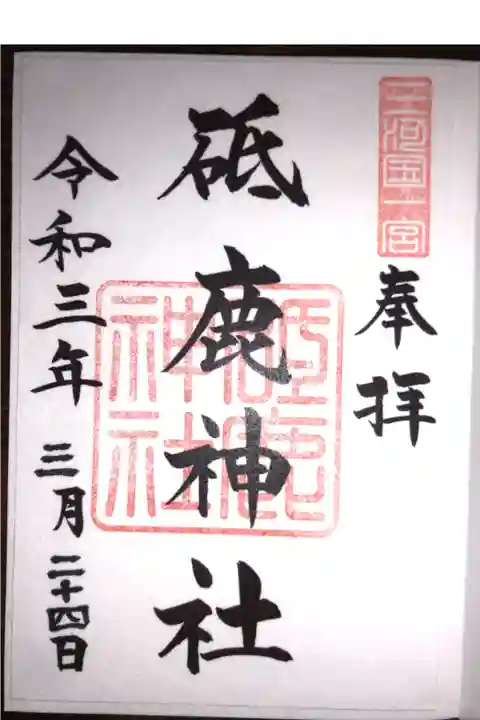 三河国一宮
奉拝
砥鹿神社
砥鹿神社
令和三年 三月二十四日